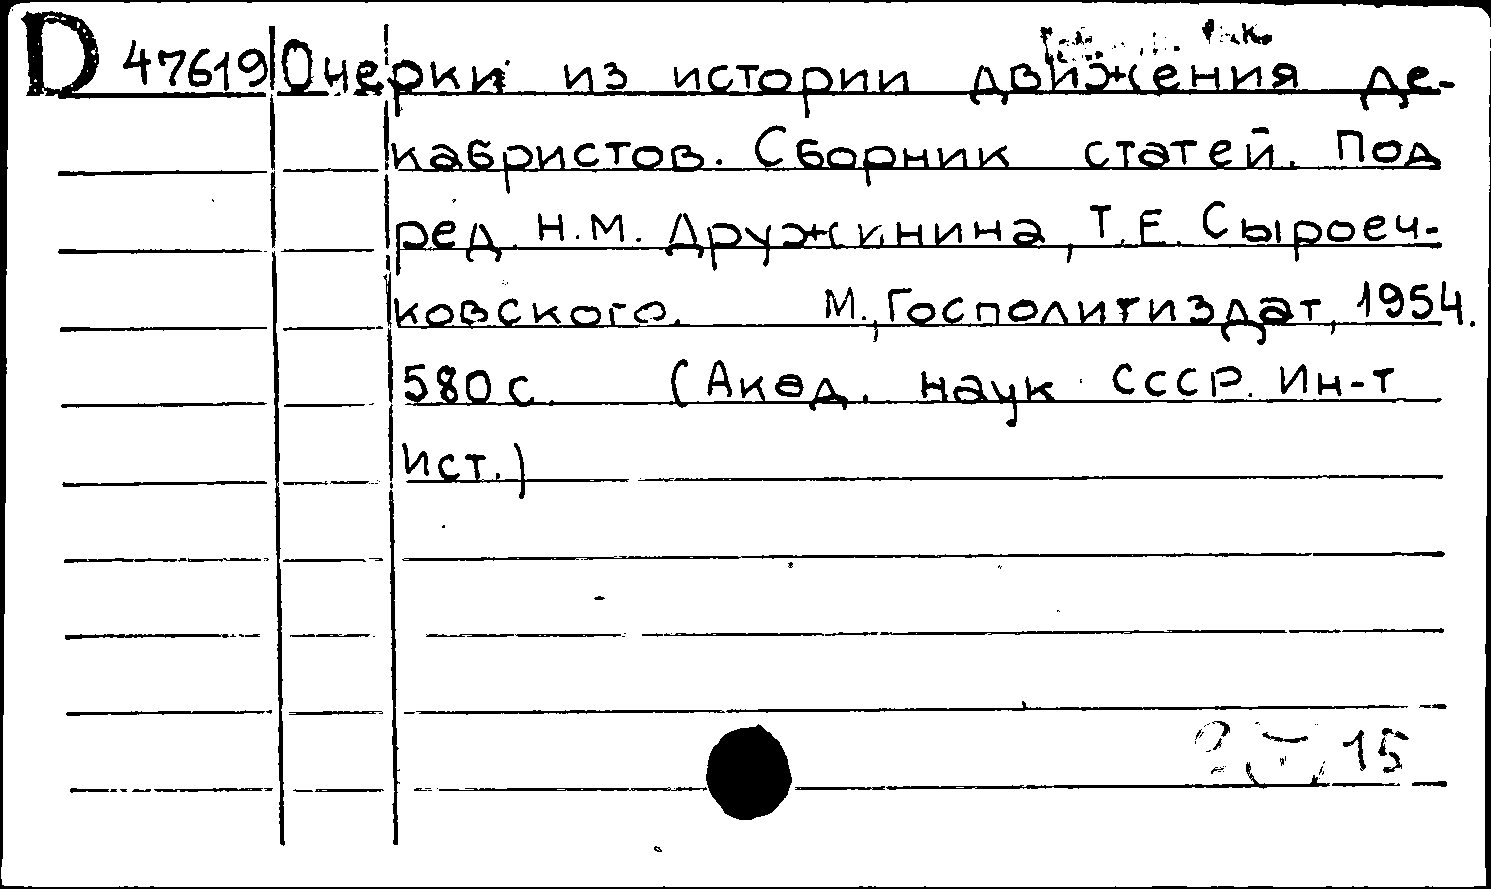 D 47619 Очерки из истории движения де-
кабристов. Сборник статей. Под
ред. Н.М. Дружинина, Т.Е. Сыроеч-
ковского. М., Госполитиздат, 1954.
580 с. (Акад. наук СССР. Ин-т
ист.)
15